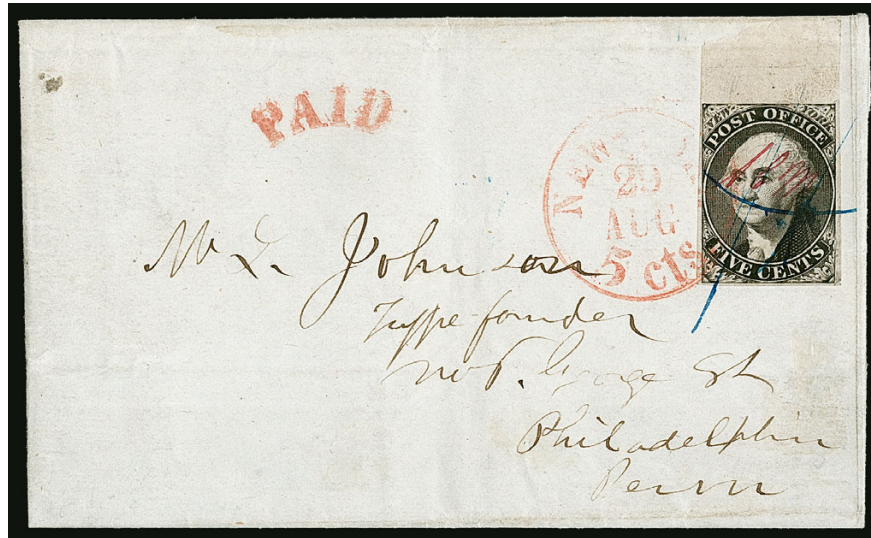 PAID
NEW
29
AUG
5 cts
POST OFFICE
FIVE CENTS
Mr L. Johnson
Type founder
George St
Philadelphia
Penn